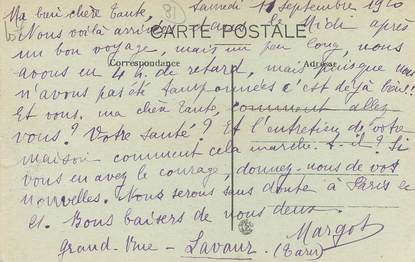 Samedi 11 Septembre 1920
Ma bien chère Tante,
Nous voilà arrivés dans le Midi après
CARTE POSTALE
un bon voyage, mais un peu long, nous
Correspondance
Adresse
avons eu 4 h. de retard, mais puisque nous
n'avons pas été tamponnées c'est déjà bien!!
Et vous, ma chère Tante, comment allez
vous? Votre santé? Et l'entretien de votre
maison - comment cela marche-t-il? Si
vous en avez le courage, donnez-nous de vos
nouvelles. Nous serons sans doute à Paris le
Bons baisers de nous deux.
Margot
Grand-Rue - Lavaur (Tarn)